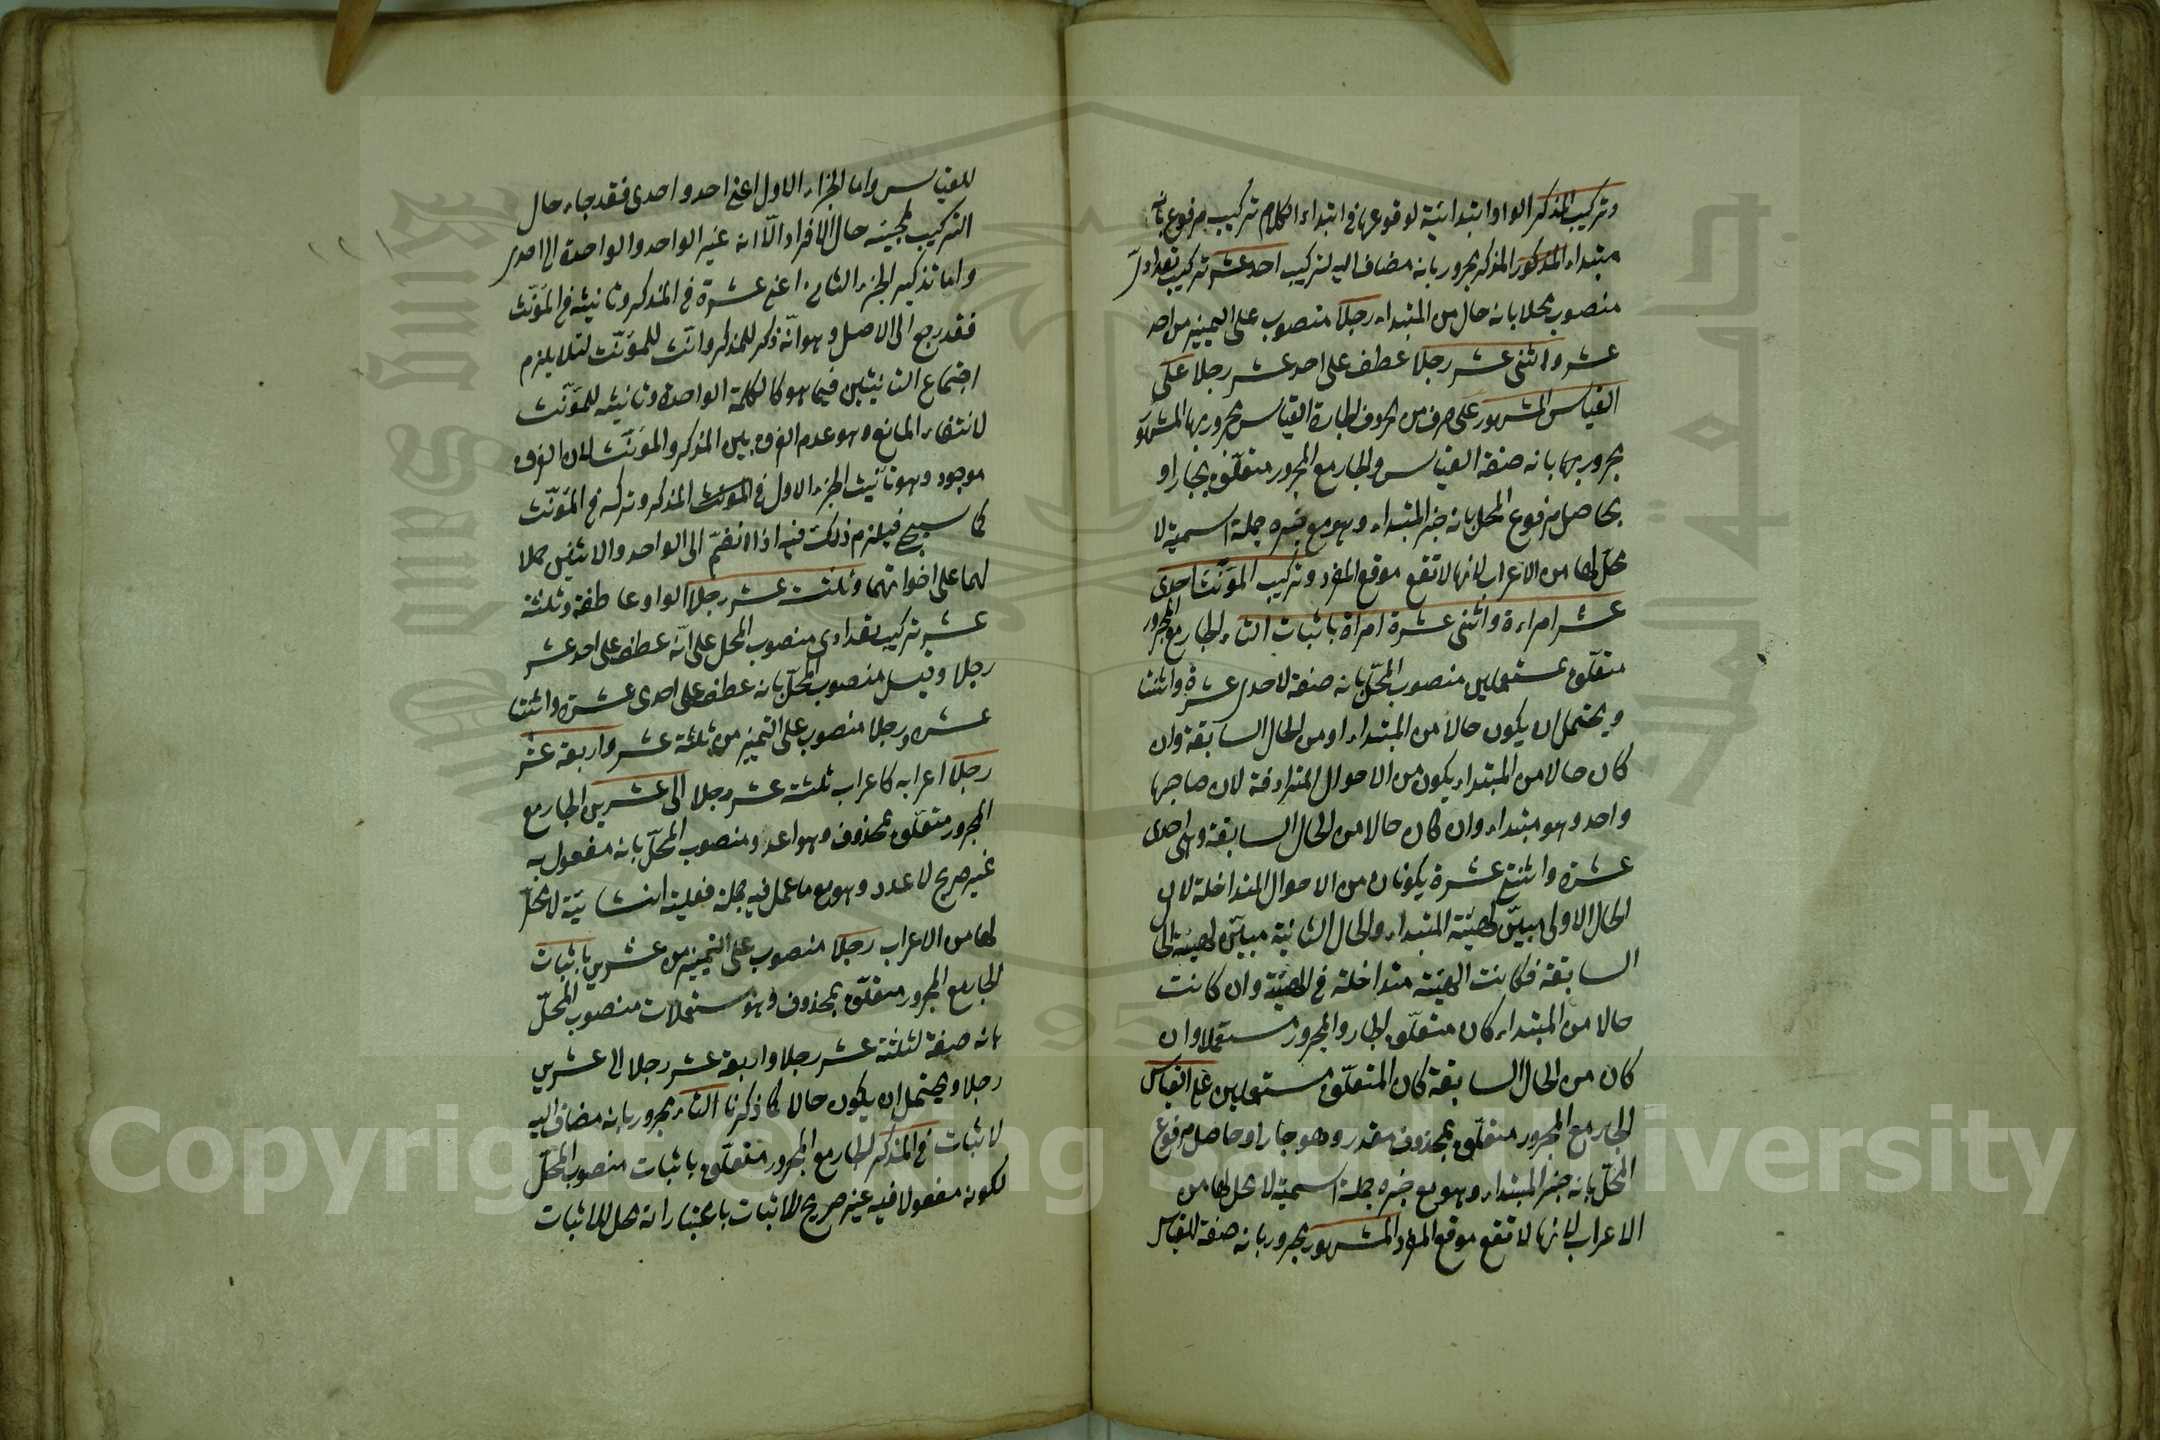 وتركيب المذكر الواو ابتدائية لوقوعها في ابتداء الكلام تركيب مرفوع بانه
مبتداء المذكور المذكر مجرور بانه مضاف اليه لتركيب احد عشر تركيب تعدادي
منصوب محلا بانه حال من المبتداء رجلا منصوب على التمييز من احد
عشر واثنى عشر رجلا عطف على احد عشر رجلا على
القياس المشهور على حرف من الحروف الجارة القياس مجرور بها المشهور
مجرور بها بانه صفة القياس والجار مع المجرور متعلق بجار او
بحاصل مرفوع المحل بانه خبر المبتداء وهو مع خبره جملة اسمية لا
محل لها من الاعراب لانها لا تقع موقع المفرد وتركيب المؤنث احدى
عشر امراءة واثنى عشرة امراة باثبات التاء الجار مع المجرور
متعلق مستعملين منصوب المحل بانه صفة لاحدى عشرة واثنتا
ويحتمل ان يكون حالا من المبتداء او من الحال السابقة وان
كان حالا من المبتداء يكون من الاحوال المترادفة لان صاحبها
واحد وهو مبتداء وان كان حالا من الحال السابقة وهي احدى
عشرة واثنتي عشرة يكونان من الاحوال المتداخلة لان
الحال الاولى مبيّن لهيئة المبتداء والحال الثانية مبيّن لهيئة الحال
السابقة فكانت الهيئة متداخلة في الهيئة وان كانت
حالا من المبتداء كان متعلق الجار والمجرور مستعملا وان
كان من الحال السابقة كان المتعلق مستعملين على القياس
الجار مع المجرور متعلق بمحذوف مقدر وهو جار او حاصل مرفوع
المحل بانه خبر المبتداء وهو مع خبره جملة اسمية لا محل لها من
الاعراب لانها لا تقع موقع المفرد المشهور مجرور بانه صفة للقياس
للقياس واما الجزاء الاول اعني احد واحدى فقد جاء حال
التركيب لمجيئه حال الافراد الا انه غير الواحد والواحدة الى احدى
واما تذكير الجزء الثاني اعني عشرة في المذكر وتانيثه في المؤنث
فقد رجع الى الاصل وهو انه ذكر للمذكر وانث للمؤنث لئلا يلزم
اجتماع التانيثين فيما هو كالكلمة الواحدة وتانيثه للمؤنث
لانتفاء المانع وهو عدم الفرق بين المذكر والمؤنث لان الفرق
موجود وهو تانيث الجزء الاول في المؤنث المذكر وتركه في المؤنث
كما سيجيء فيلزم ذلك فيه اذا انضم الى الواحد والاثنين حملا
لهما على اخواتهما وثلثة عشر رجلا الواو عاطفة وثلثة
عشر تركيب تعدادي منصوب المحل على انه عطف على احد عشر
رجلا وقيل منصوب المحل بانه عطف على احدى عشرة واثنتا
عشره ورجلا منصوب على التمييز من ثلثة عشر واربعة عشر
رجلا اعرابه كاعراب ثلثة عشر رجلا الى عشرين الجار مع
المجرور متعلق بمحذوف وهو اعد ومنصوب المحل بانه مفعول به
غير صريح لاعدد وهو مع ما عمل فيه جملة فعلية انشائية لا محل
لها من الاعراب رجلا منصوب على التمييز من عشرين باثبات
الجار مع المجرور متعلق بمحذوف وهو مستعملات منصوب المحل
بانه صفة لثلثة عشر رجلا واربعة عشر رجلا الى عشرين
رجلا ويحتمل ان يكون حالا كما ذكرنا التاء مجرور بانه مضاف اليه
لاثبات في المذكر الجار مع المجرور متعلق باثبات منصوب المحل
لكونه مفعولا فيه غير صريح للاثبات باعتبار انه محل للاثبات
Copyright © King Saud University